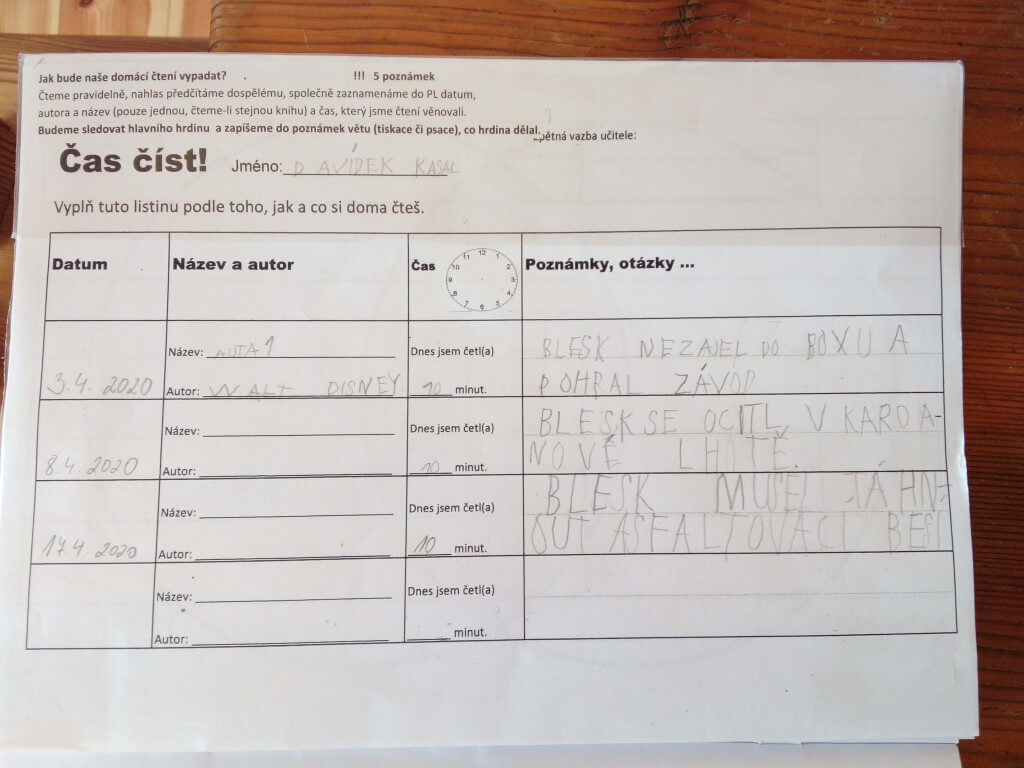 Jak bude naše domácí čtení vypadat? . !!! 5 poznámek
Čteme pravidelně, nahlas předčítáme dospělému, společně zaznamenáme do PL datum,
autora a název (pouze jednou, čteme-li stejnou knihu) a čas, který jsme čtení věnovali.
Budeme sledovat hlavního hrdinu a zapíšeme do poznámek větu (tiskace či psace), co hrdina dělal.
pětná vazba učitele:
Čas číst! Jméno: DAVÍDEK KASAL
Vyplň tuto listinu podle toho, jak a co si doma čteš.
Datum Název a autor Čas Poznámky, otázky ...
12 1 2 3 4 5 6 7 8 9 10 11
Název: AUTA 1 Dnes jsem četl(a) BLESK NEZAJEL DO BOXU A
3.4. 2020 Autor: WALT DISNEY 10 minut. POHRAL ZÁVOD
Název: Dnes jsem četl(a) BLESK SE OCITL V KARDA-
8.4. 2020 Autor: 10 minut. NOVĚ LHOTĚ.
Název: Dnes jsem četl(a) BLESK MUSEL TÁHN-
17.4. 2020 Autor: 10 minut. OUT ASFALTOVACÍ BEST
Název: Dnes jsem četl(a)
Autor: minut.